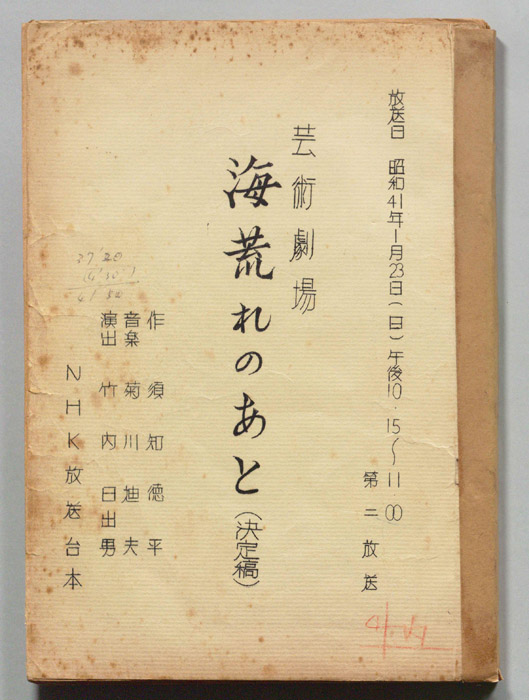 放送日 昭和41年1月23日(日)午後10.15〜11.00
第二放送
芸術劇場
海荒れのあと(決定稿)
作 須知徳平
音楽 菊川迪夫
演出 竹内日出男
NHK放送台本